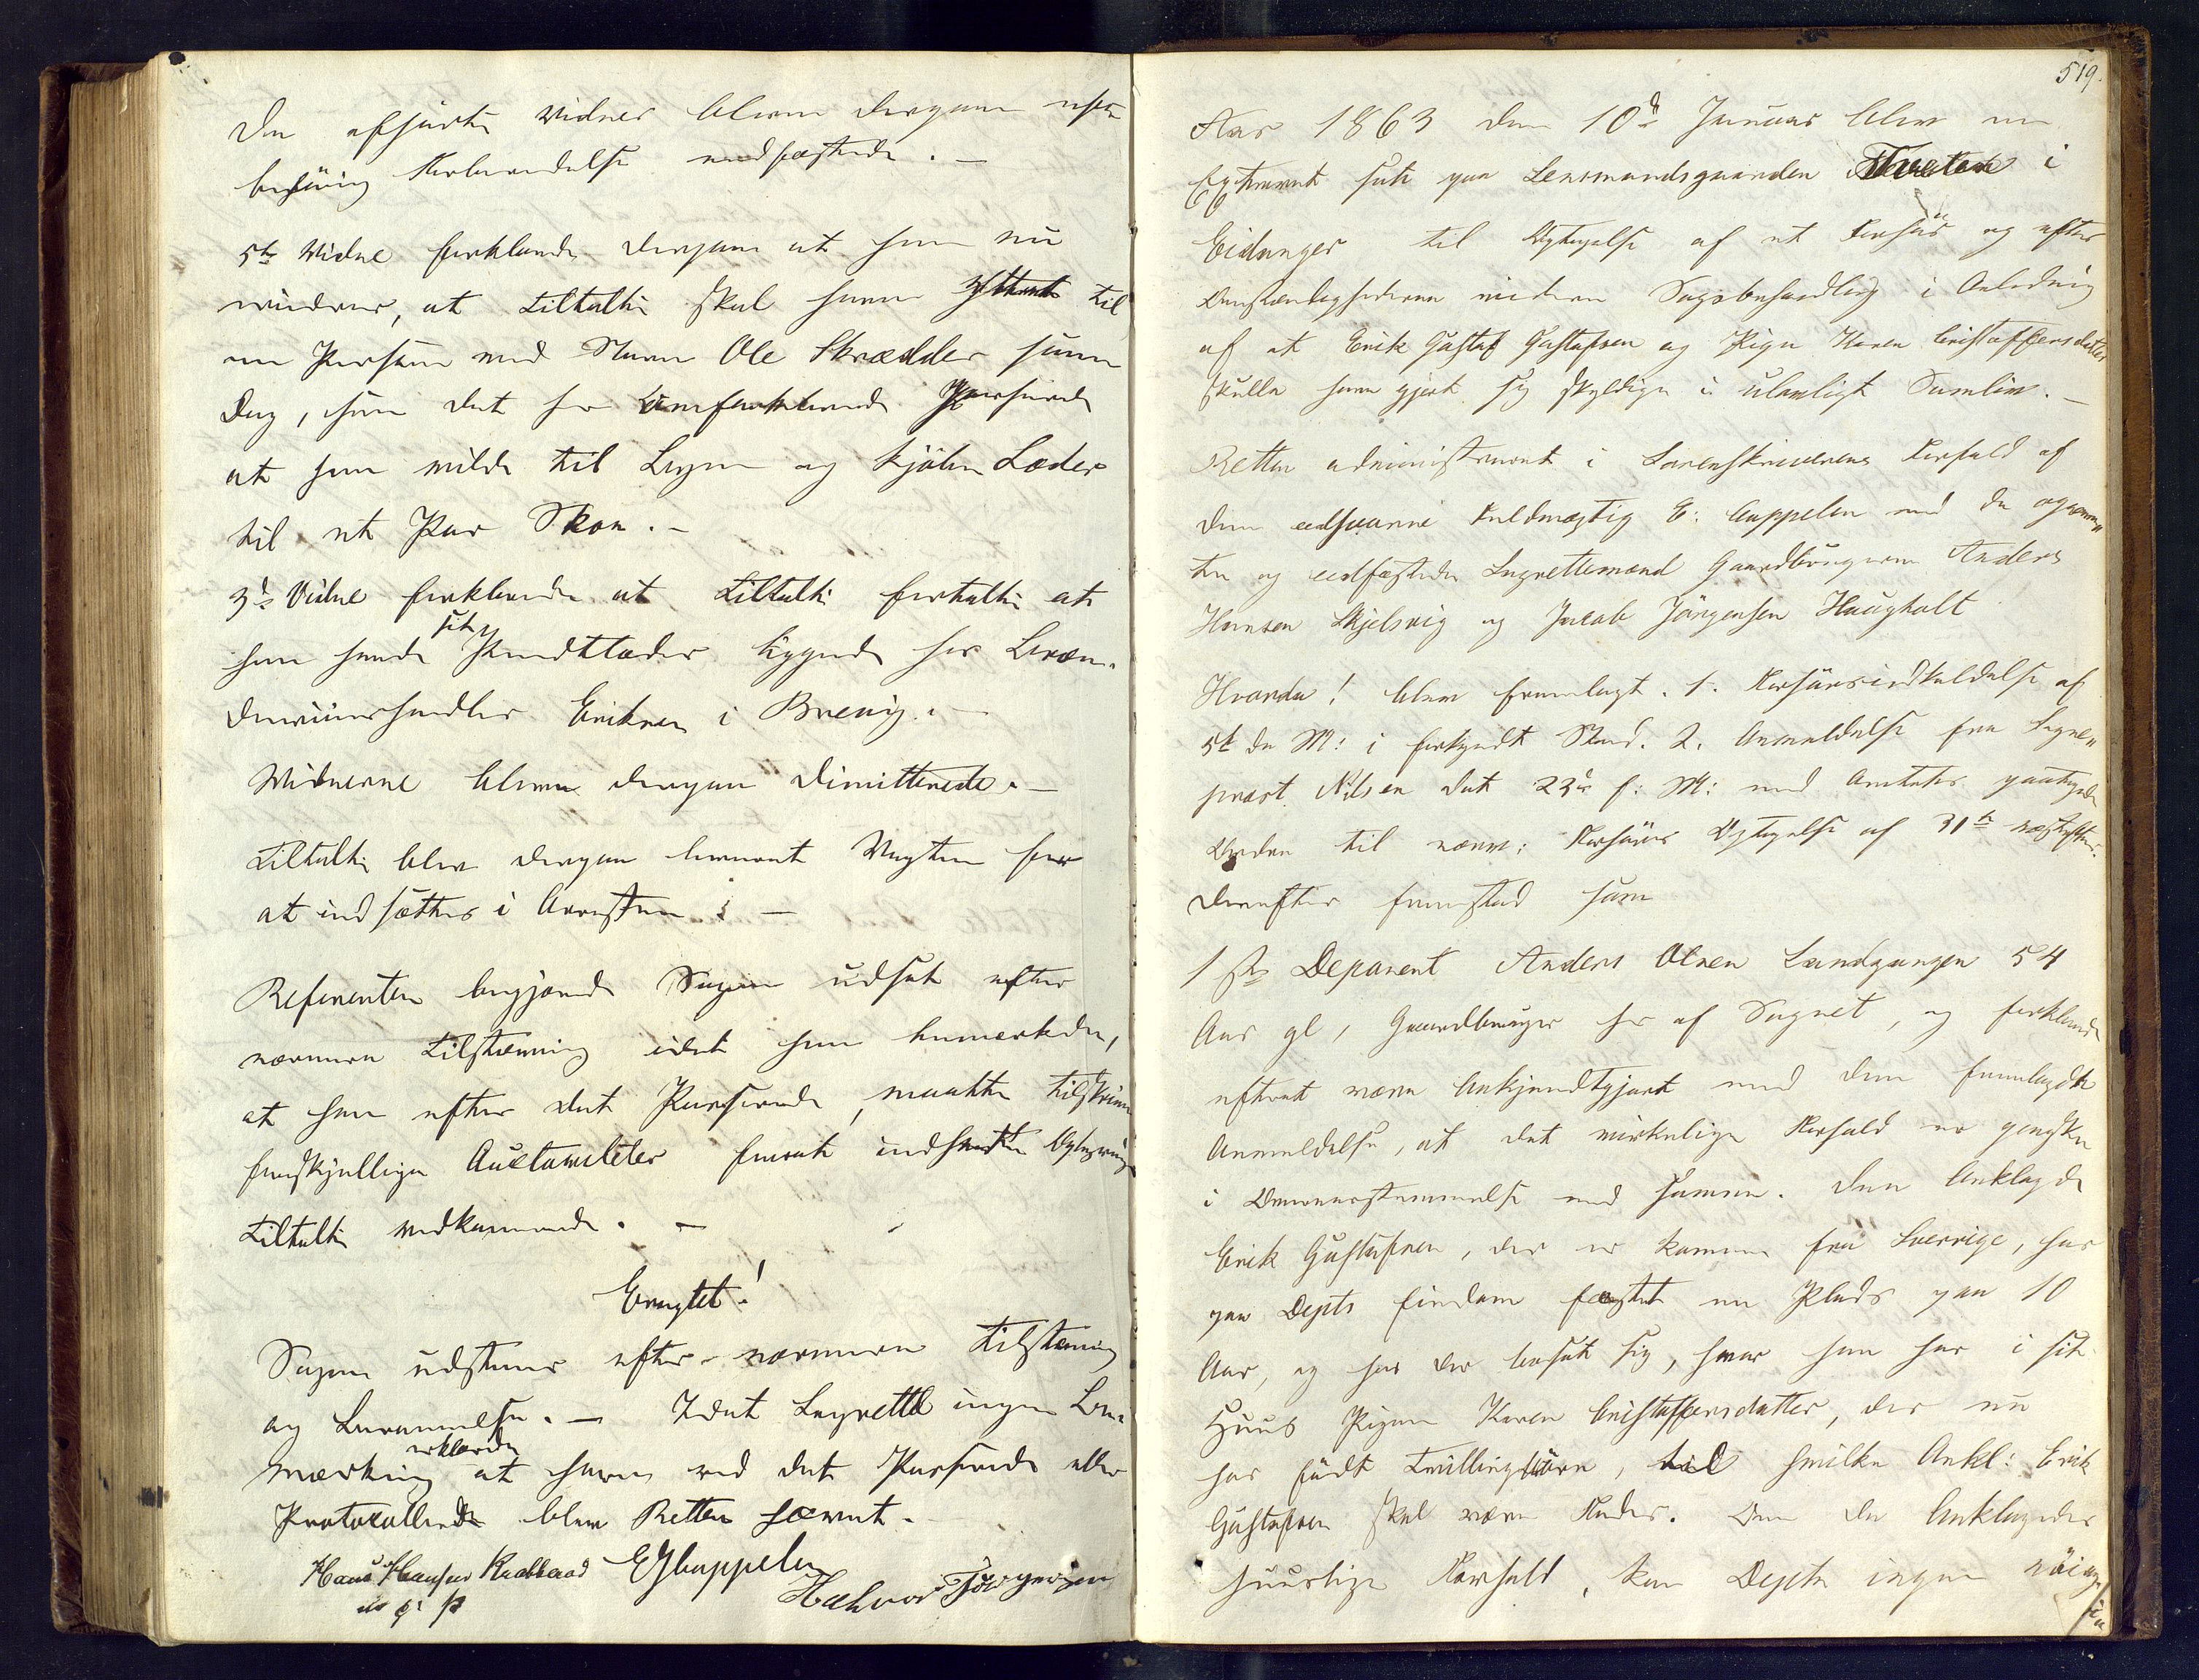 De afhørte Vidner bleve dernæst efter
behørig Forberedelse edfæstede. —
5te Vidne forklarede dernæst at han nu
mindes, at Tiltalte skal have yttret til
en Person med Navn Ole Skrædder samme
Dag, som det her omforklarede Passerede
at han vilde til og kjøbe Læder
til et Par Skoe. —
3de Vidne forklarede at Tiltalte fortalte at
han havde sit Skindklæder liggende hos Bræn-
deviinshandler Eriksen i Brevig. —
Vidnerne bleve derpaa dimitterede. —
Tiltalte blev derpaa leveret Vagten for
at indsættes i Arresten. —
Referenten begjærede Sagen udsat efter
nærmere Tilstævning idet han bemærkede,
at han efter det Passerede maatte tilskrive
forskjellige Auctoriteter forat indhente Oplysning
Tiltalte vedkommende. —
Eragtet!
Sagen udstaaer efter nærmere Tilstævning
og Berammelse. — Idet Lagrettet ingen Be-
mærkning erklærede at have ved det Passerede eller
Protocollerede blev Retten hævet.
Hans Hansen EHCappelen
Halvor Jørgensen
519.
Aar 1863 den 10de Januar blev en
Extraret sat paa Lensmandsgaarden Tveten i
Eidanger til Optagelse af et Forhør og efter
Omstændighederne videre Sagsbehandling i Anledning
af at Erik Gustaf Gustafsen og Pige Karen Cristoffersdatter
skulle have gjort sig skyldige i ulovligt Samliv. —
Retten administreret i Sorenskriverens Forfald af
den edsvorne Fuldmægtig E: Cappelen med de opnævn-
te og edfæstede Lagrettemænd Gaardbrugerne Anders
Hansen Skjelsvig og Jacob Jörgensen Haugholt
Hvorda! blev fremlagt. 1. Forhørsindkaldelse af
5te de M: i forkyndt Stand. 2. Anmeldelse fra Sogne-
præst Nilsen dat 23de f: M: med Amtets paategnede
Ordre til nævn: Forhørs Optagelse af 31te næstefter.
Derefter fremstod som
1ste Deponent Anders Olsen Landgangen 54
Aar gl, Gaardbruger her af Sognet, og forklarede
efterat være bekjendtgjort med den fremlagte
Anmeldelse, at det virkelige Forhold er ganske
i Overeensstemmelse med samme. Den Anklagede
Erik Gustafsen, der er kommen fra Sverrige, har
paa Depts Eiendom fæstet en Plads paa 10
Aar, og har der bosat sig, hvor han har i sit
Huus Pigen Karen Cristoffersdatter, der nu
har födt Tvillingbörn, til hvilke Ankl: Erik
Gustafsen skal være Fader. Om de Anklagedes
huuslige Forhold, kan Depts ingen nöiag-